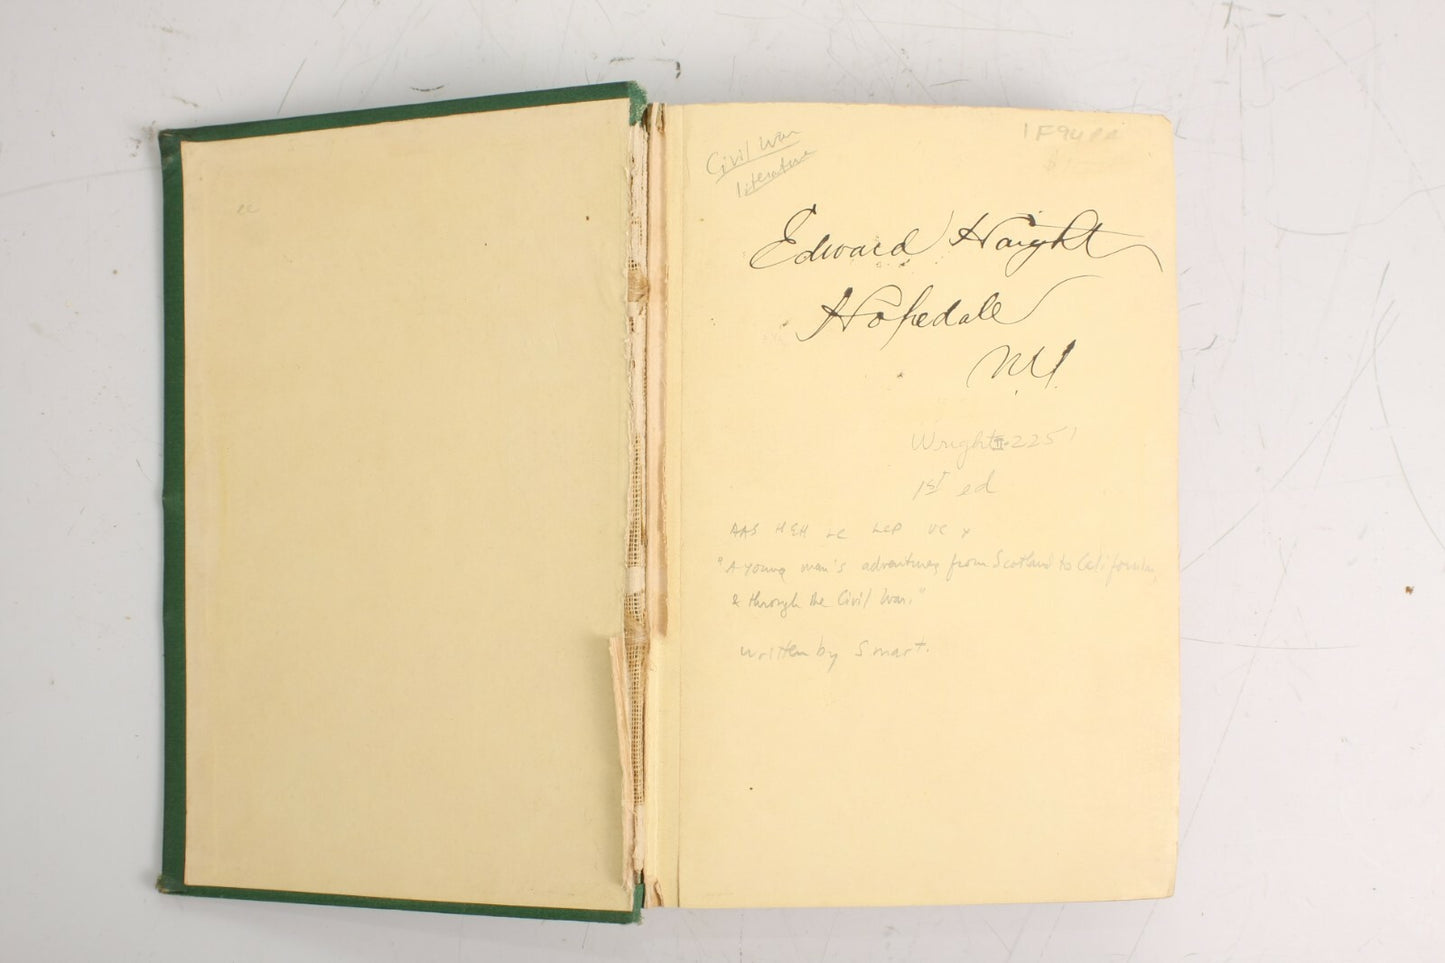 Civil War
literature
Edward Haight
Hopedale
Wright II-2251
1st ed
AAS HEH LC LCP UC x
"A young man's adventures from Scotland to California,
& through the Civil War."
written by Smart.